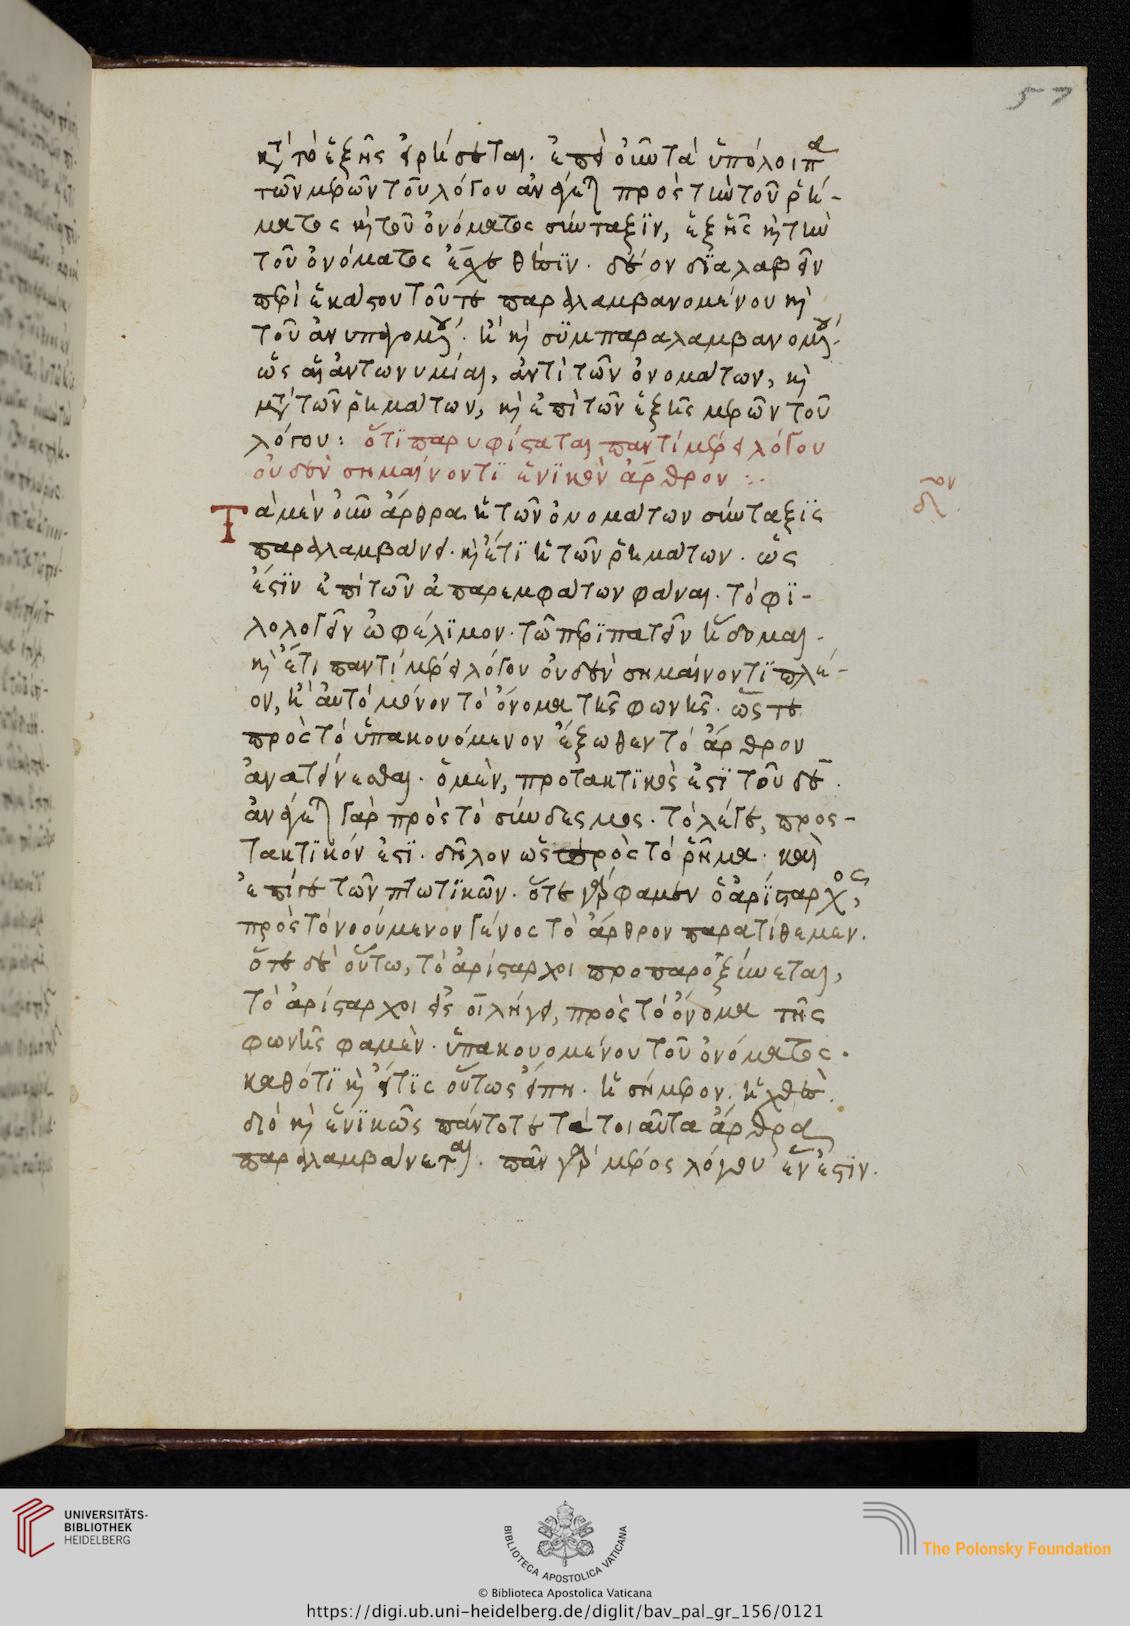 57
κατὰ τὸ ἑξῆς εἰρήσεται. ἐπεὶ οὖν τὰ ὑπόλοιπα
τῶν μερῶν τοῦ λόγου ἀνάγεται πρὸς τὴν τοῦ ῥή-
ματος καὶ τοῦ ὀνόματος σύνταξιν, ἐξ ἧς καὶ τὴν
τοῦ ὀνόματος ἔσχε θέσιν. δέον διαλαβεῖν
περὶ ἑκάστου τοῦ τε παραλαμβανομένου καὶ
τοῦ ἀνυπαγομένου. ἢ καὶ συμπαραλαμβανομένου.
ὡς αἱ ἀντωνυμίαι, ἀντὶ τῶν ὀνομάτων, καὶ
μετὰ τῶν ῥημάτων, καὶ ἐπὶ τῶν ἑξῆς μερῶν τοῦ
λόγου: ὅτι παρυφίσταται παντὶ μέρει λόγου
οὐδὲν σημαίνοντι ἑνικὸν ἄρθρον :.
Τὰ μὲν οὖν ἄρθρα ἡ τῶν ὀνομάτων σύνταξις
παραλαμβάνει. καὶ ἔτι ἡ τῶν ῥημάτων. ὥς
ἐστιν ἐπὶ τῶν ἀπαρεμφάτων φάναι. τὸ φι-
λολογεῖν ὠφέλιμον. τῷ περιπατεῖν ἥδομαι.
καὶ ἔτι παντὶ μέρει λόγου οὐδὲν σημαίνοντι πλέ-
ον, ἢ αὐτὸ μόνον τὸ ὄνομα τῆς φωνῆς. ὥστε
πρὸς τὸ ὑπακουόμενον ἔξωθεν τὸ ἄρθρον
ἀνατείνεσθαι. ὁ μὲν, προτακτικός ἐστι τοῦ δέ.
ἀνάγεται γὰρ πρὸς τὸ σύνδεσμος. τὸ λέγε, προς-
τακτικόν ἐστι. δῆλον ὡς πρὸς τὸ ῥῆμα. καὶ
ἐπί τε τῶν πτωτικῶν. ὅτε γὰρ φαμὲν ὁ ἀρίσταρχος,
πρὸς τὸ νοούμενον γένος τὸ ἄρθρον παρατίθεμεν.
ὅτε δὲ οὕτω, τὸ ἀρίσταρχοι προπαροξύνεται,
τὸ ἀρίσταρχοι εἰς οι λήγει, πρὸς τὸ ὄνομα τῆς
φωνῆς φαμὲν. ὑπακουομένου τοῦ ὀνόματος.
καθότι καὶ εἴ τις οὕτως εἴπῃ. ἢ σήμερον. ἢ χθὲς.
διὸ καὶ ἑνικῶς πάντοτε τὰ τοιαῦτα ἄρθρα
παραλαμβάνεται. πᾶν γὰρ μέρος λόγου ἕν ἐστιν.
UNIVERSITÄTS-
BIBLIOTHEK
HEIDELBERG
BIBLIOTECA APOSTOLICA VATICANA
The Polonsky Foundation
© Biblioteca Apostolica Vaticana
https://digi.ub.uni-heidelberg.de/diglit/bav_pal_gr_156/0121